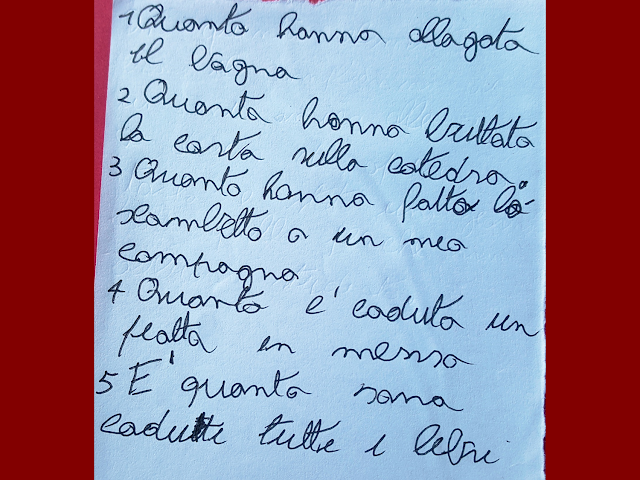 1 Quanto hanno allagato
il bagno
2 Quanto hanno buttato
la carta sulla catedra.
3 Quanto hanno fatto lo
scambetto a un mio
compagno
4 Quanto e' caduto un
piatto in mensa
5 E' quanto sono
caduti tutti i libri